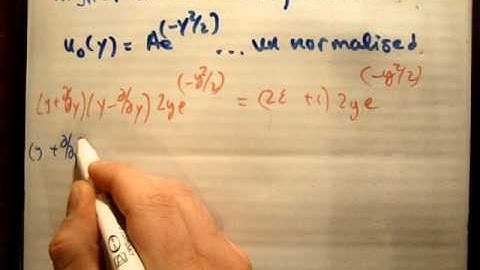 u₀(y) = Ae^(-y²/2) ... un normalised.
(y+∂/∂y)(y-∂/∂y) 2ye^(-y²/2) = (2ε +1) 2ye^(-y²/2)
(y + ∂/∂